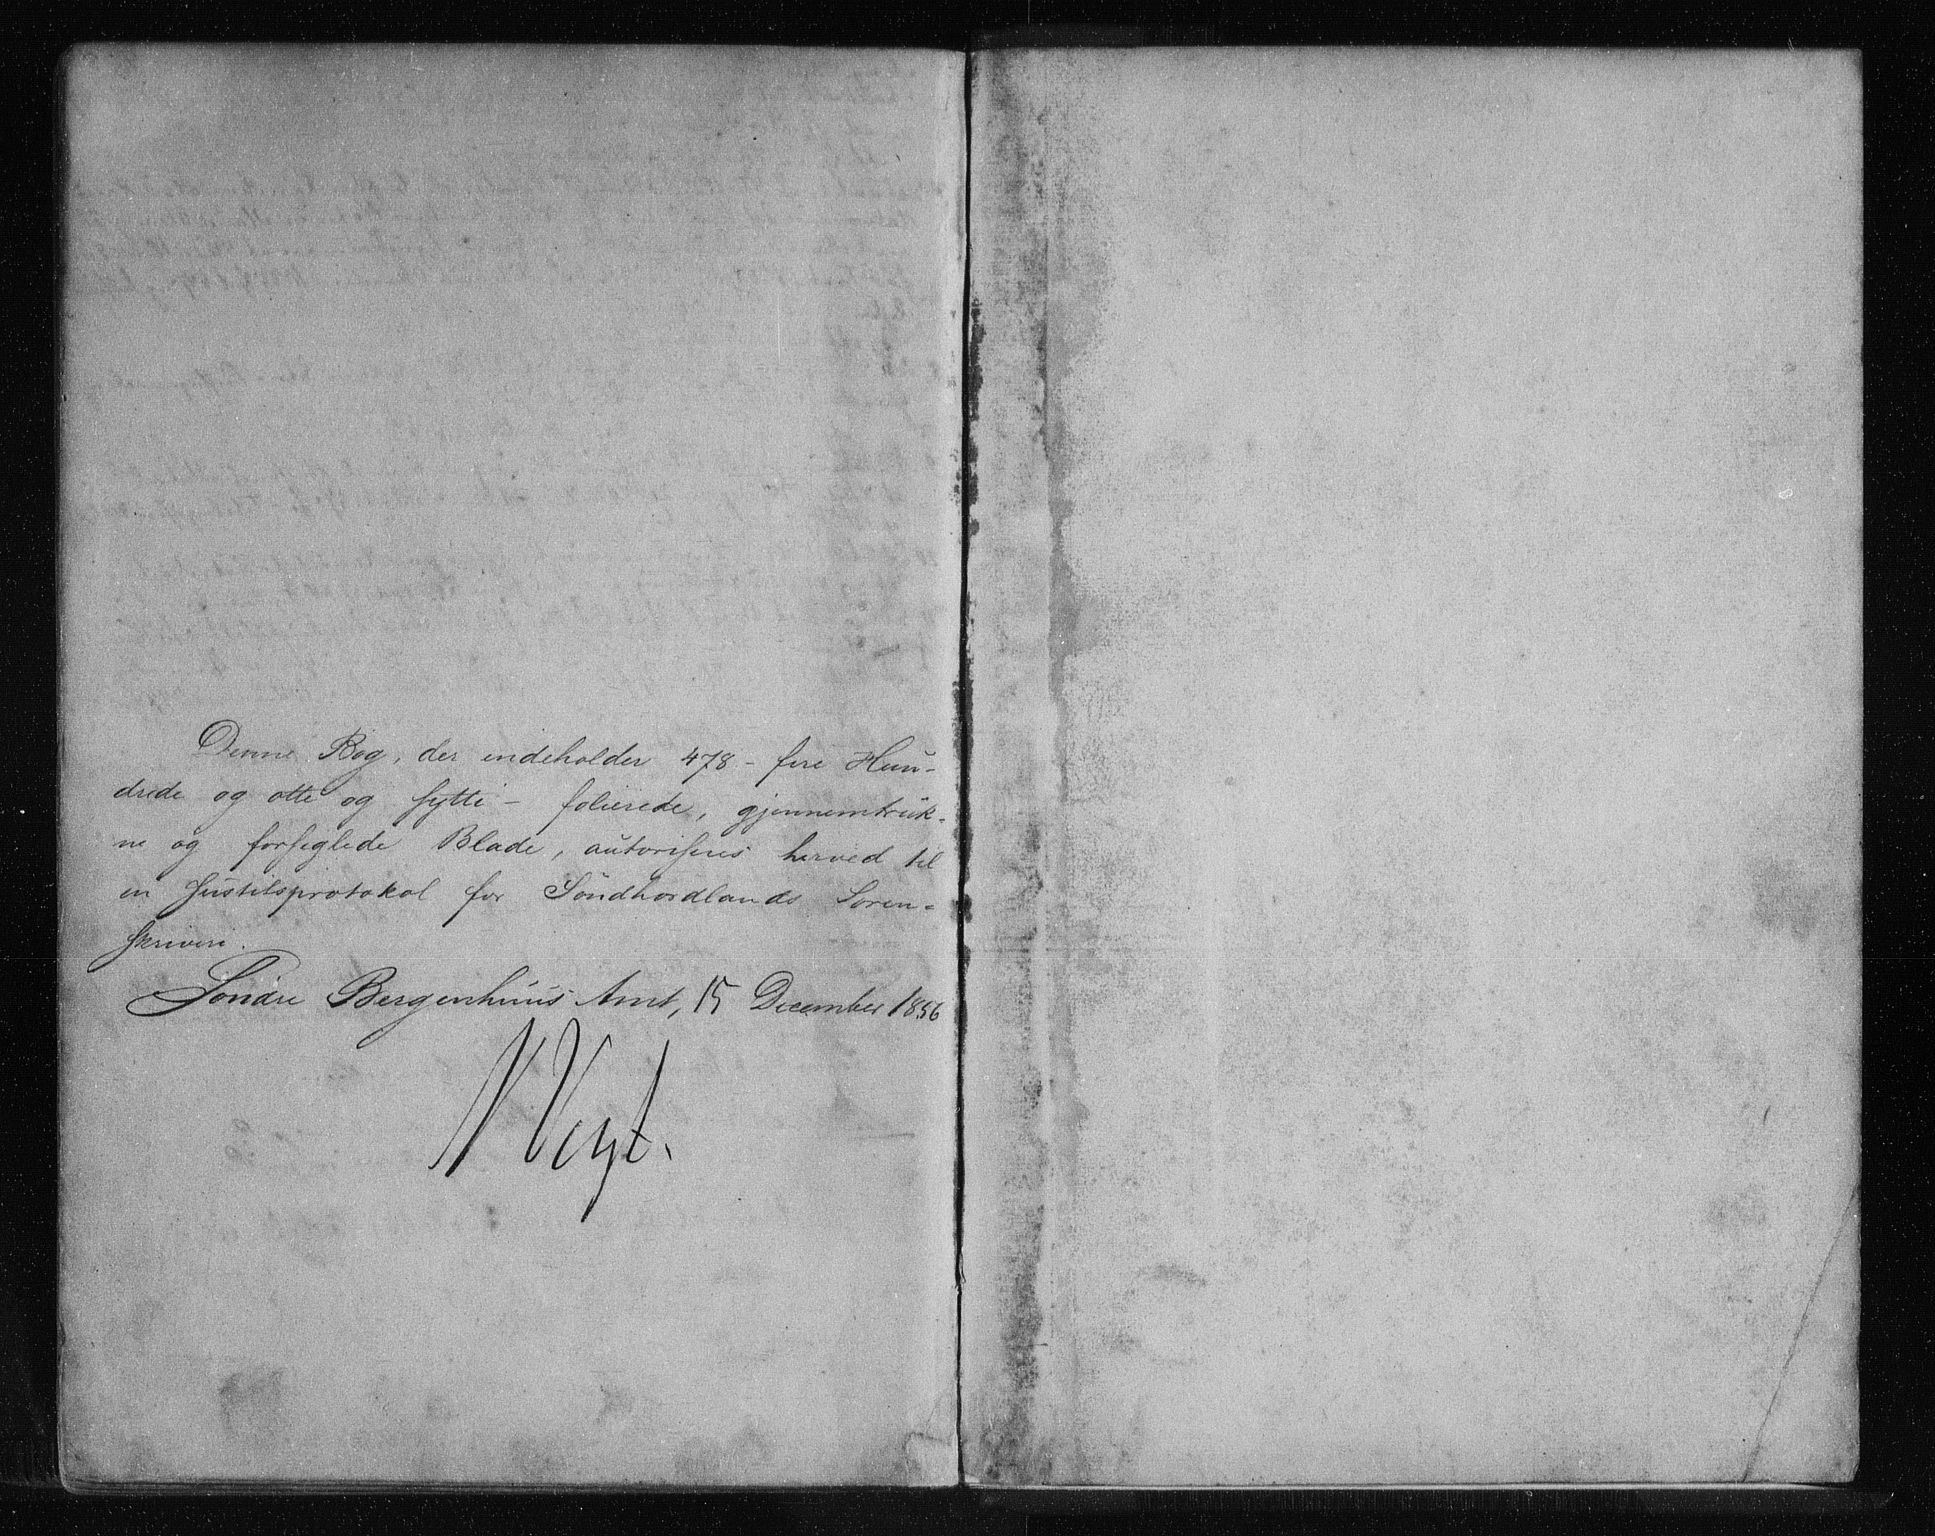 Denne Bog, der indeholder 478 - fire Hun-
drede og otte og sytti - folierede, gjennemtruk-
ne og forseglede Blade, autoriseres herved til
en Justitsprotokol for Söndhordlands Soren-
skriveri.
Söndre Bergenhuus Amt, 15 December 1856